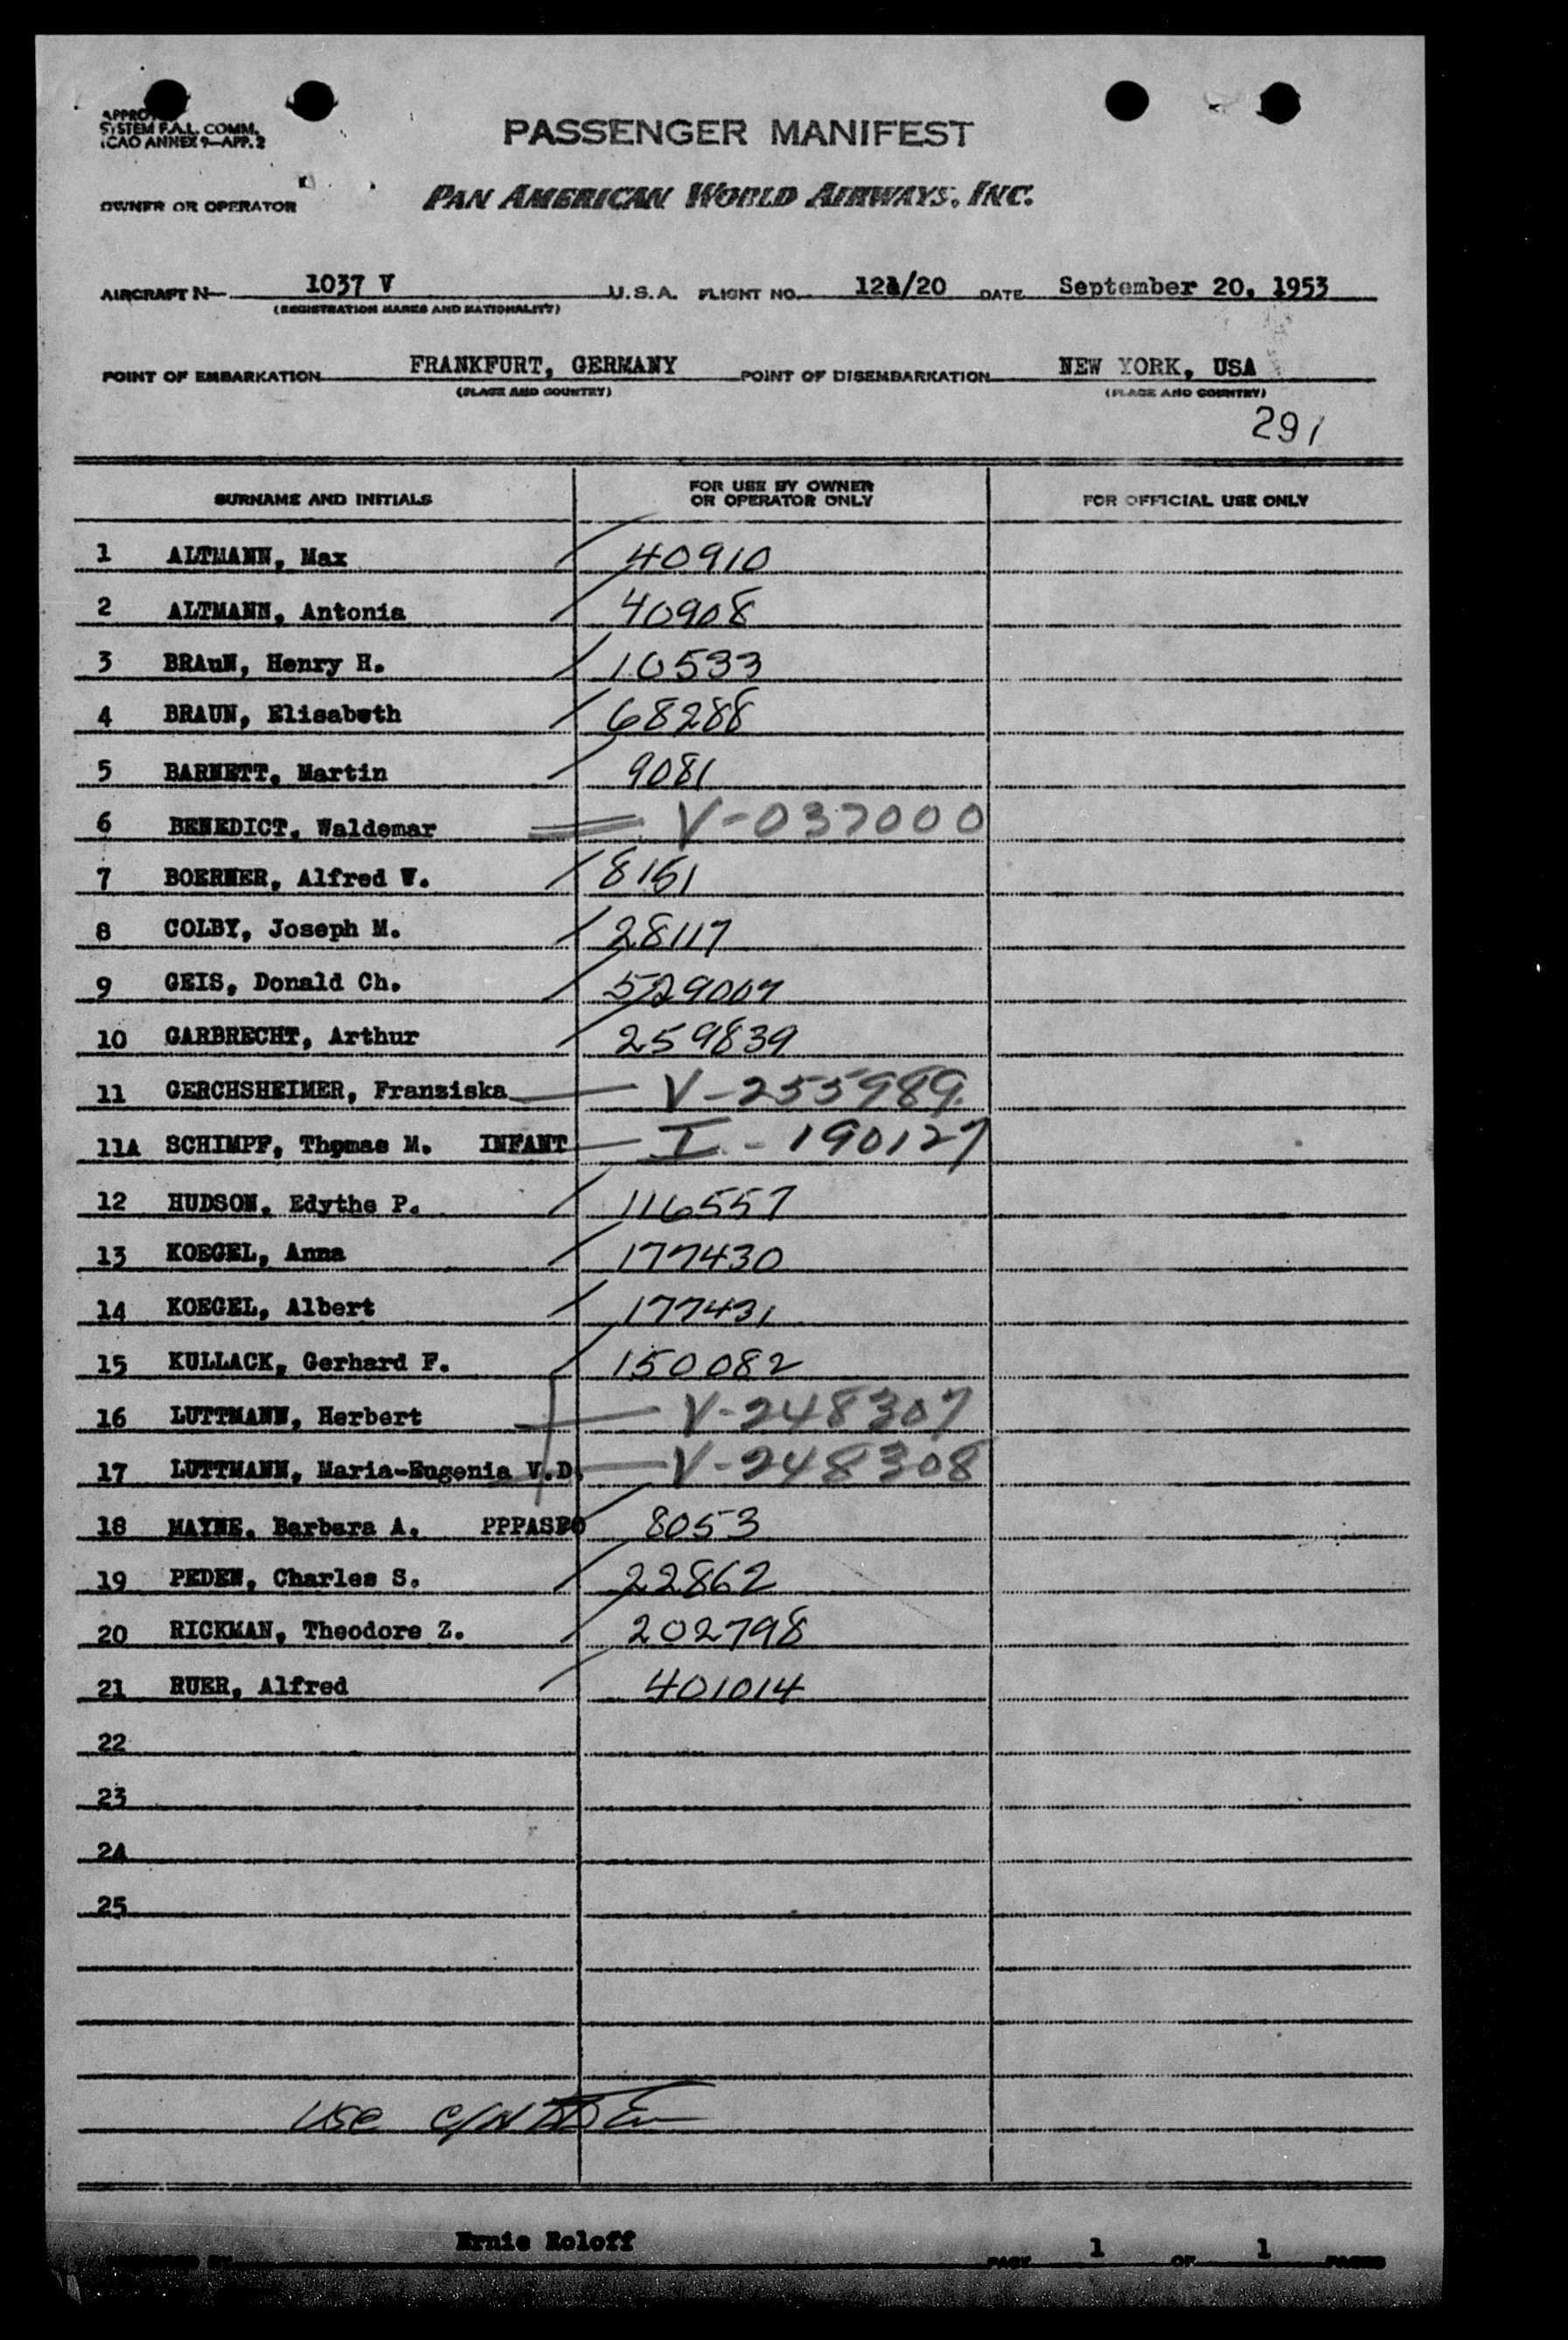 APPRO
SYSTEM F.A.L. COMM.
ICAO ANNEX 9—APP. 2
PASSENGER MANIFEST
OWNER OR OPERATOR PAN AMERICAN WORLD AIRWAYS, INC.
AIRCRAFT N— 1037 V U.S.A. FLIGHT NO. /20 DATE September 20, 1953
(REGISTRATION MARKS AND NATIONALITY)
POINT OF EMBARKATION FRANKFURT, GERMANY POINT OF DISEMBARKATION NEW YORK, USA
(PLACE AND COUNTRY) (PLACE AND COUNTRY)
291
SURNAME AND INITIALS FOR USE BY OWNER OR OPERATOR ONLY FOR OFFICIAL USE ONLY
1 ALTMANN, Max 40910
2 ALTMANN, Antonia 40908
3 BRAuN, Henry H. 10533
4 BRAUN, Elisabeth 68288
5 BARNETT, Martin 9081
6 BENEDICT, Waldemar V-037000
7 BOERNER, Alfred W. 8151
8 COLBY, Joseph M. 28117
9 GEIS, Donald Ch. 529007
10 GARBRECHT, Arthur 259839
11 GERCHSHEIMER, Franziska V-255989
11A SCHIMPF, Thomas M. INFANT I-190127
12 HUDSON, Edythe P. 116557
13 KOEGEL, Anna 177430
14 KOEGEL, Albert 177431
15 KULLACK, Gerhard F. 150082
16 LUTTMANN, Herbert V-248307
17 LUTTMANN, Maria-Eugenia V.D. V-248308
18 MAYNE, Barbara A. PPPASPO 8053
19 PEDEN, Charles S. 22862
20 RICKMAN, Theodore Z. 202798
21 RUER, Alfred 401014
22
23
24
25
use
Ernie Roloff PAGE 1 OF 1 PAGES